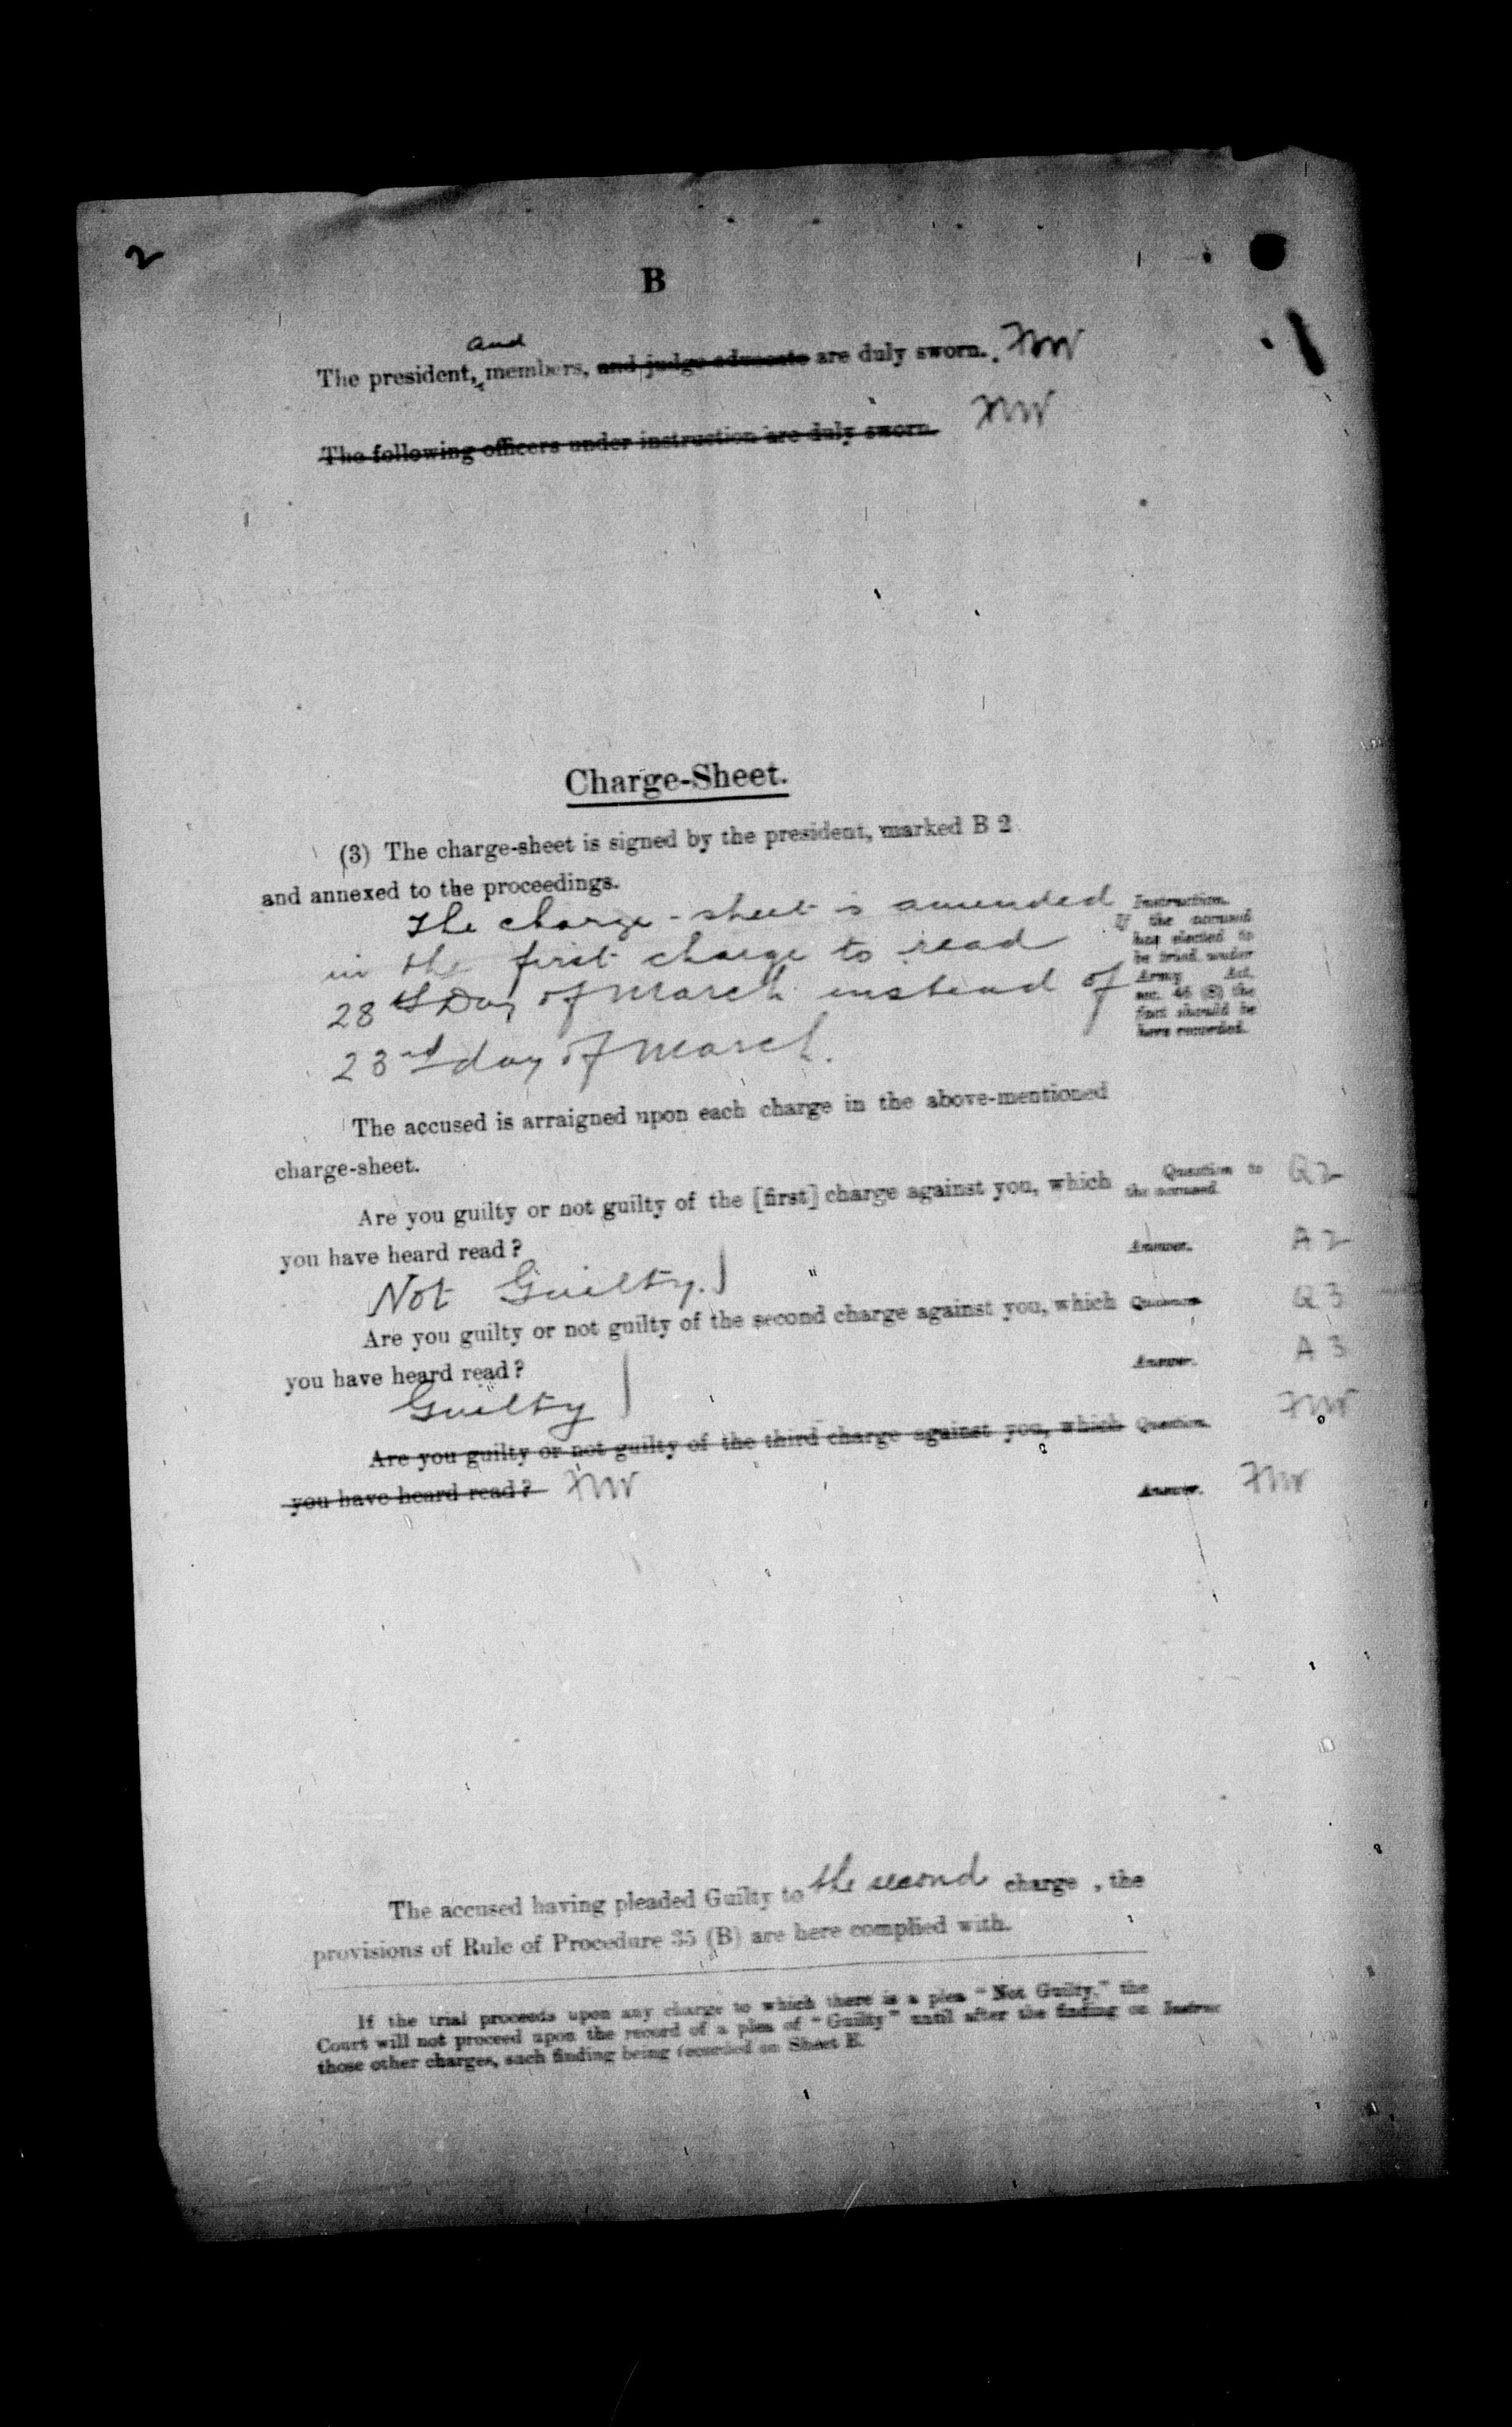 2
B
and
The president, members, and judge advocate are duly sworn. FMW
The following officers under instruction are duly sworn. FMW
Charge-Sheet.
(3) The charge-sheet is signed by the president, marked B 2
and annexed to the proceedings.
The charge-sheet is amended
in the first charge to read
28th Day of March instead of
23rd day of March.
Instruction.
If the accused
has elected to
be tried under
Army Act,
sec. 46 (8) the
fact should be
here recorded.
The accused is arraigned upon each charge in the above-mentioned
charge-sheet.
Are you guilty or not guilty of the [first] charge against you, which Question to Q2
the accused.
you have heard read? Answer. A2
Not Guilty.
Are you guilty or not guilty of the second charge against you, which Question Q3
you have heard read? Answer. A3
Guilty
Are you guilty or not guilty of the third charge against you, which Question. FMW
you have heard read? FMW Answer. FMW
The accused having pleaded Guilty to the second charge , the
provisions of Rule of Procedure 35 (B) are here complied with.
If the trial proceeds upon any charge to which there is a plea "Not Guilty," the
Court will not proceed upon the record of a plea of "Guilty" until after the finding on Instruc
those other charges, such finding being recorded on Sheet E.